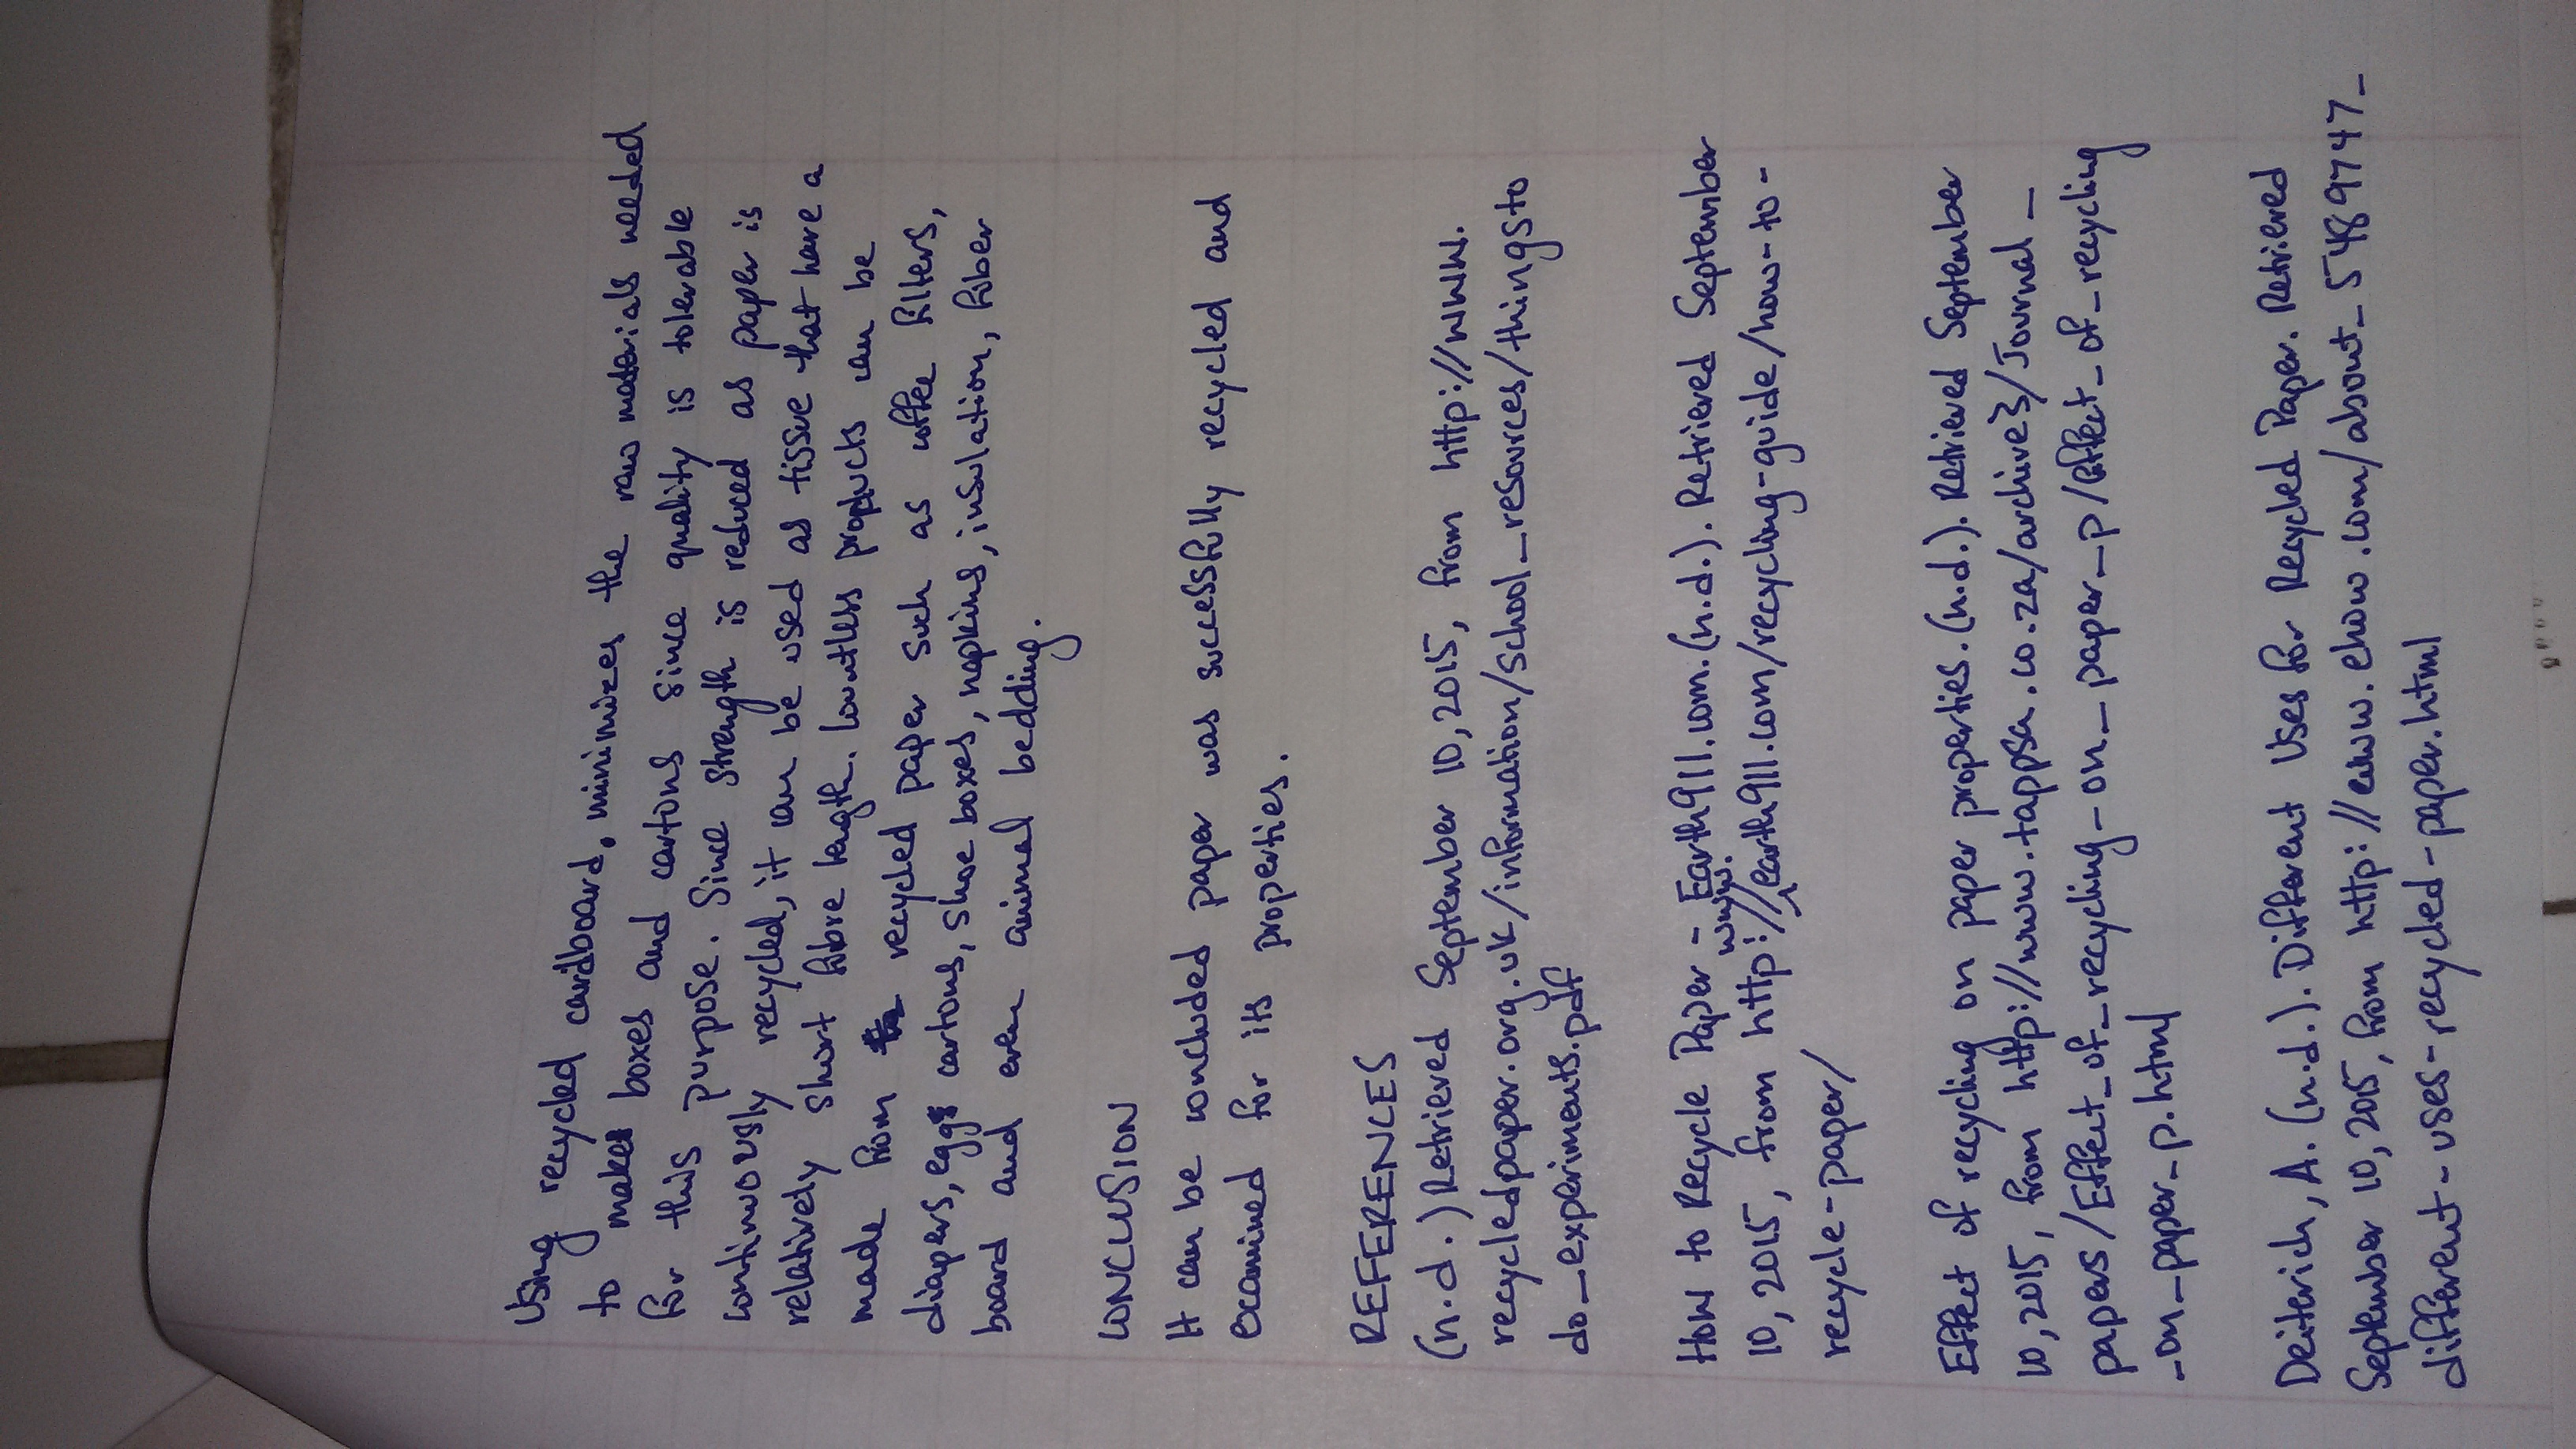 Using recycled cardboard. minimizes the raw materials needed
to make boxes and cartons since quality is tolerable
for this purpose. Since strength is reduced as paper is
continuously recycled, it can be used as tissue that have a
relatively short fibre length. Countless products can be
made from recycled paper such as coffee filters,
diapers, egg cartons, shoe boxes, napkins, insulation, fiber
board and even animal bedding.
CONCLUSION
It can be concluded paper was successfully recycled and
examined for its properties.
REFERENCES
(n.d.) Retrieved September 10, 2015, from http://www.
recycledpaper.org.uk/information/school_resources/thingsto
do_experiments.pdf
How to Recycle Paper - Earth911.com. (n.d.). Retrieved September
10, 2015, from http://www.earth911.com/recycling-guide/how-to-
recycle-paper/
Effect of recycling on paper properties. (n.d.). Retrieved September
10, 2015, from http://www.tappsa.co.za/archive3/Journal_
papers/Effect_of_recycling_on_paper_p/effect_of_recycling
_on_paper_p.html
Deiterich, A. (n.d.). Different Uses for Recycled Paper. Retrieved
September 10, 2015, from http://www.ehow.com/about_5489747_
different-uses-recycled-paper.html